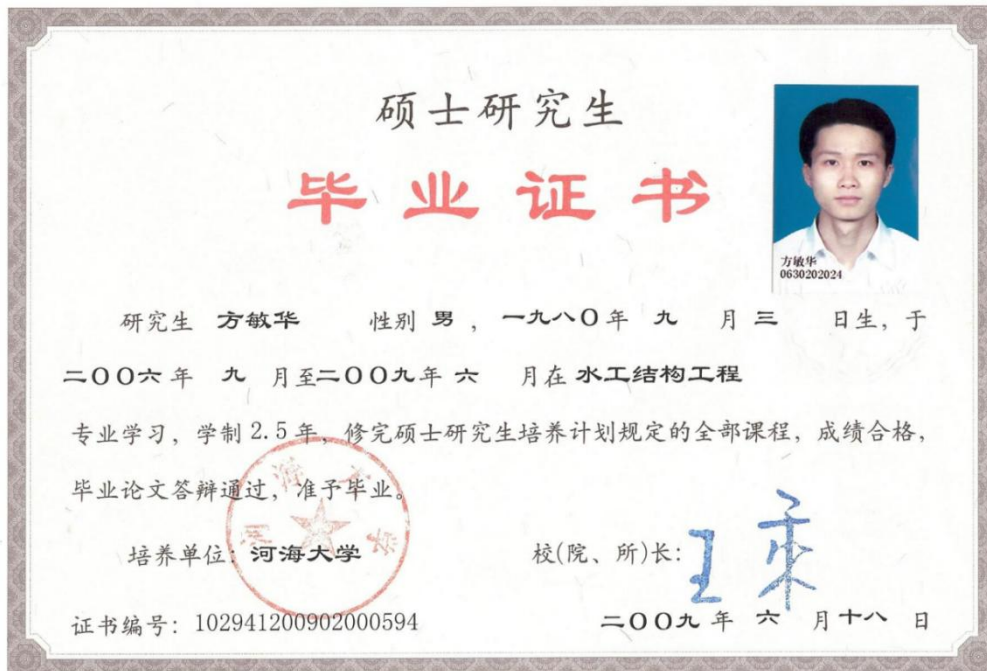 硕士研究生
毕业证书
方敏华
0630202024
研究生 方敏华 性别 男 ，一九八〇年 九 月 三 日生，于
二〇〇六年 九 月至二〇〇九年 六 月在 水工结构工程
专业学习，学制 2.5 年，修完硕士研究生培养计划规定的全部课程，成绩合格，
毕业论文答辩通过，准予毕业。
河海大学
培养单位：河海大学 校(院、所)长：王乘
证书编号：102941200902000594 二〇〇九 年 六 月十八 日